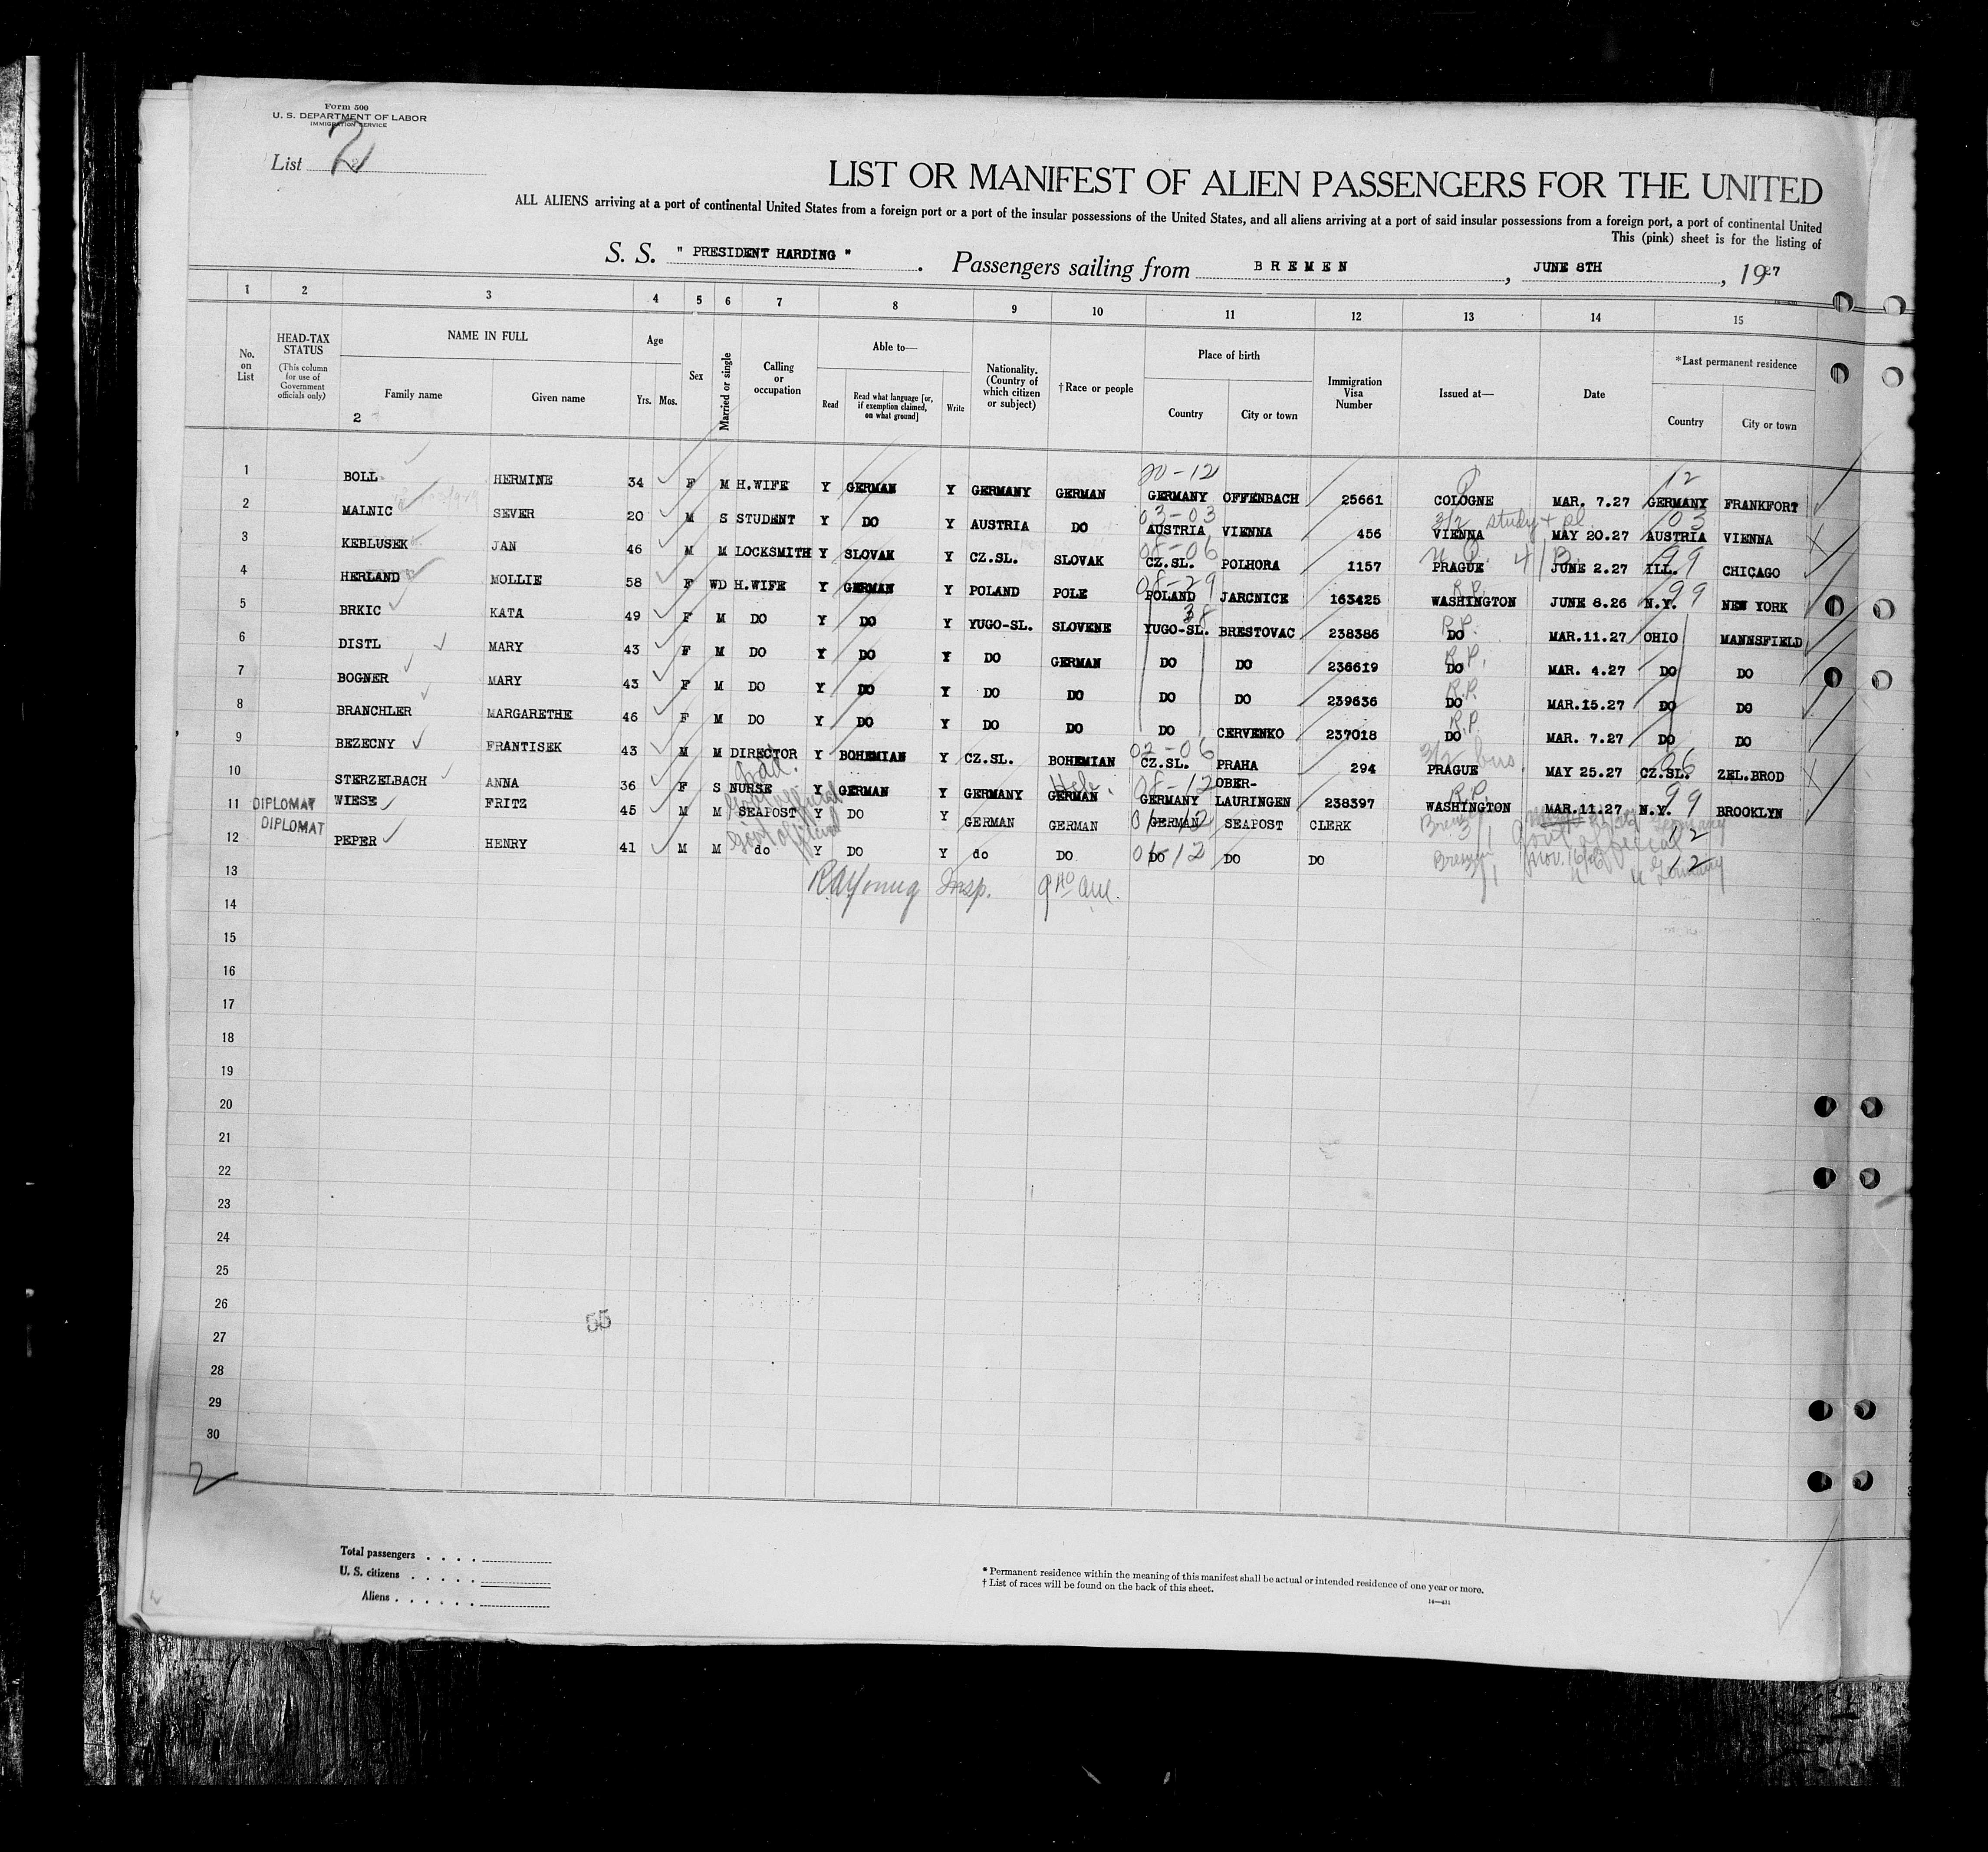 Form 500
U. S. DEPARTMENT OF LABOR
IMMIGRATION SERVICE
List 2
LIST OR MANIFEST OF ALIEN PASSENGERS FOR THE UNITED
ALL ALIENS arriving at a port of continental United States from a foreign port or a port of the insular possessions of the United States, and all aliens arriving at a port of said insular possessions from a foreign port, a port of continental United
This (pink) sheet is for the listing of
S. S. " PRESIDENT HARDING " . Passengers sailing from BREMEN , JUNE 8TH , 1927
1 2 3 4 5 6 7 8 9 10 11 12 13 14 15
No. on List
HEAD-TAX STATUS
(This column for use of Government officials only)
NAME IN FULL
Family name
Given name
2
Age
Yrs. Mos.
Sex
Married or single
Calling or occupation
Able to—
Read
Read what language [or, if exemption claimed, on what ground]
Write
Nationality. (Country of which citizen or subject)
†Race or people
Place of birth
Country
City or town
Immigration Visa Number
Issued at—
Date
*Last permanent residence
Country
City or town
20-12 12
1 BOLL HERMINE 34 F M H.WIFE Y GERMAN Y GERMANY GERMAN GERMANY OFFENBACH 25661 COLOGNE MAR. 7.27 GERMANY FRANKFORT
03-03 3/2 study + pl. 03
2 MALNIC SEVER 20 M S STUDENT Y DO Y AUSTRIA DO AUSTRIA VIENNA 456 VIENNA MAY 20.27 AUSTRIA VIENNA
08-06 99
3 KEBLUSEK JAN 46 M M LOCKSMITH Y SLOVAK Y CZ.SL. SLOVAK CZ.SL. POLHORA 1157 PRAGUE JUNE 2.27 ILL. CHICAGO
08-29 R.P. 99
4 HERLAND MOLLIE 58 F WD H.WIFE Y GERMAN Y POLAND POLE POLAND JARCNICE 163425 WASHINGTON JUNE 8.26 N.Y. NEW YORK
38 R.P.
5 BRKIC KATA 49 F M DO Y DO Y YUGO-SL. SLOVENE YUGO-SL. BRESTOVAC 238386 DO MAR.11.27 OHIO MANNSFIELD
R.P.
6 DISTL MARY 43 F M DO Y DO Y DO GERMAN DO DO 236619 DO MAR. 4.27 DO DO
R.P.
7 BOGNER MARY 43 F M DO Y DO Y DO DO DO DO 239636 DO MAR.15.27 DO DO
R.P.
8 BRANCHLER MARGARETHE 46 F M DO Y DO Y DO DO DO CERVENKO 237018 DO MAR. 7.27 DO DO
02-06 3/2 bus. 06
9 BEZECNY FRANTISEK 43 M M DIRECTOR Y BOHEMIAN Y CZ.SL. BOHEMIAN CZ.SL. PRAHA 294 PRAGUE MAY 25.27 CZ.SL. ZEL.BROD
Grad. Heb. 08-12 R.P. 99
10 STERZELBACH ANNA 36 F S NURSE Y GERMAN Y GERMANY GERMAN GERMANY OBER-LAURINGEN 238397 WASHINGTON MAR.11.27 N.Y. BROOKLYN
Govt official 01-12 3/1 Govt official Germany 12
11 DIPLOMAT WIESE FRITZ 45 M M SEAPOST Y DO Y GERMAN GERMAN GERMAN SEAPOST CLERK
Govt official 01-12 3/1 Nov. 16/26 Germany 12
12 DIPLOMAT PEPER HENRY 41 M M do Y DO Y do DO DO DO DO
13 R A Young Insp.
14
15
16
17
18
19
20
21
22
23
24
25
26
55
27
28
29
30
2
Total passengers . . . .
U. S. citizens . . . . .
Aliens . . . . . .
* Permanent residence within the meaning of this manifest shall be actual or intended residence of one year or more.
† List of races will be found on the back of this sheet.
14—431